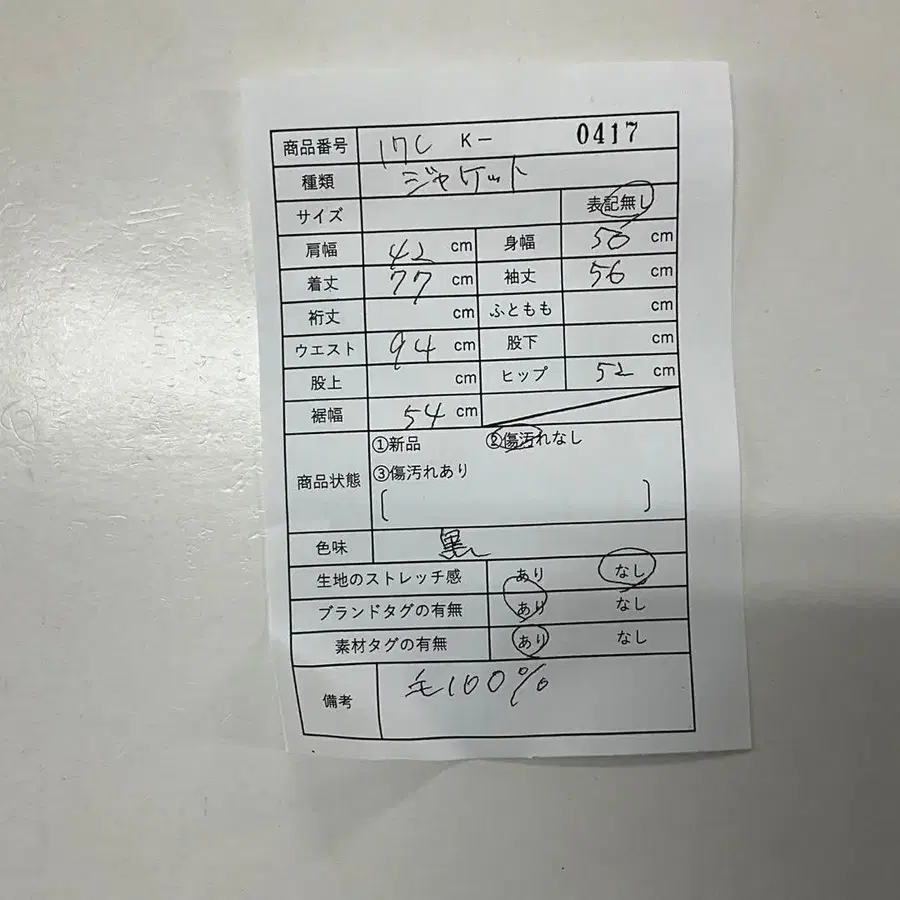 商品番号 17C K- 0417
種類 ジャケット
サイズ 表記無し
肩幅 42 cm 身幅 50 cm
着丈 77 cm 袖丈 56 cm
裄丈 cm ふともも cm
ウエスト 94 cm 股下 cm
股上 cm ヒップ 52 cm
裾幅 54 cm
①新品 ②傷汚れなし
商品状態 ③傷汚れあり
[ ]
色味 黒
生地のストレッチ感 あり なし
ブランドタグの有無 あり なし
素材タグの有無 あり なし
備考 毛100%